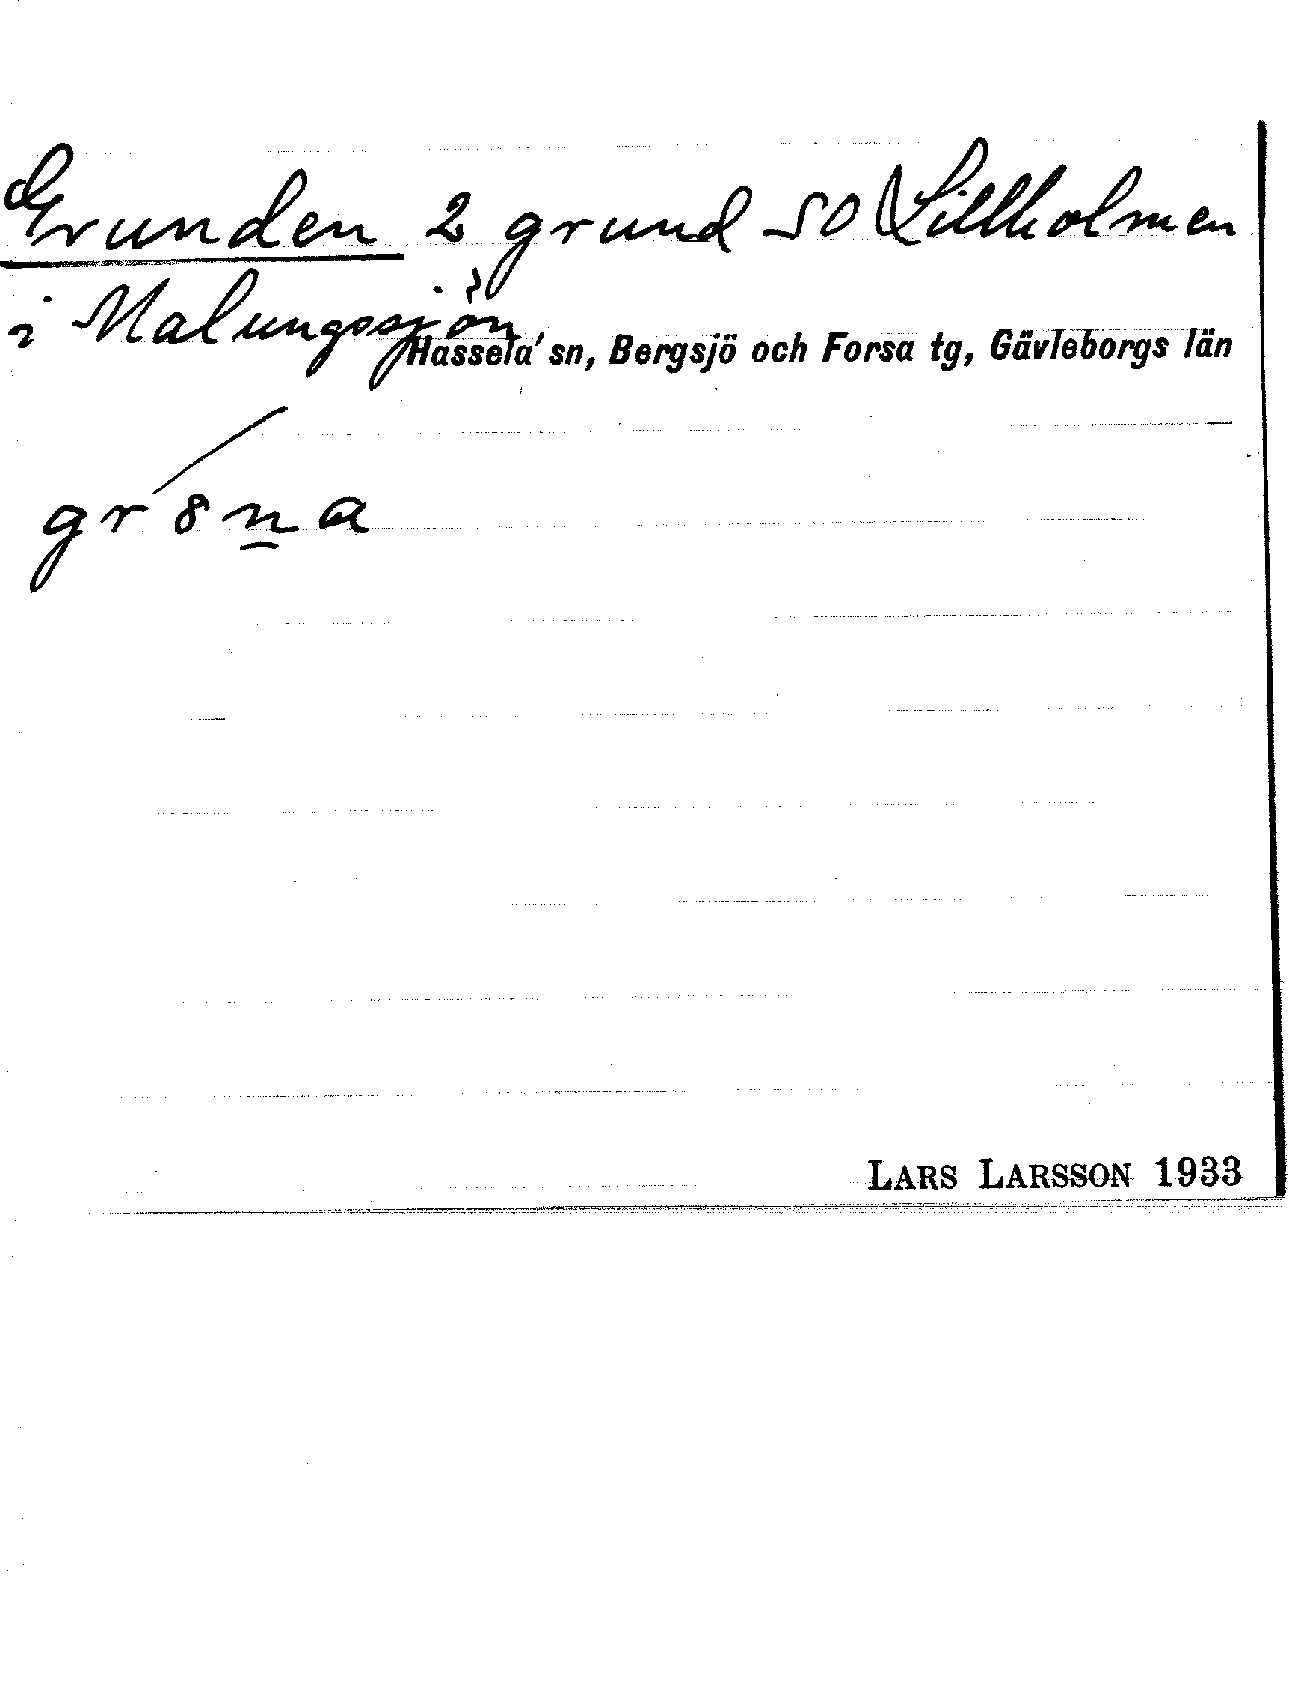 Grunden 2 grund SO Lillholmen
i Malungssjön
Hassela sn, Bergsjö och Forsa tg, Gävleborgs län
gr8n̲a
LARS LARSSON 1933